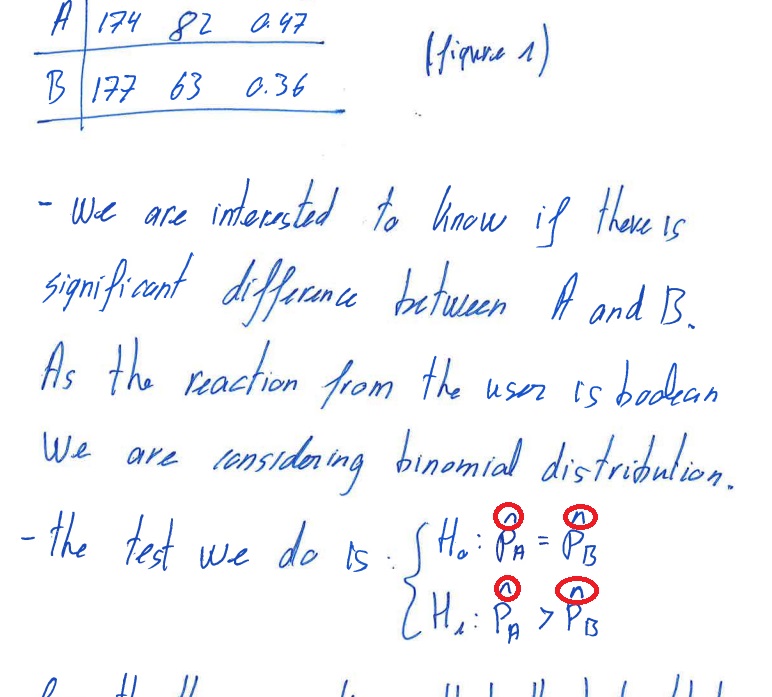 A 174 82 0.47
(figure 1)
B 177 63 0.36
- We are interested to know if there is
significant difference between A and B.
As the reaction from the user is boolean
We are considering binomial distribution.
- the test we do is : { H₀ : p̂_A = p̂_B
H₁ : p̂_A > p̂_B